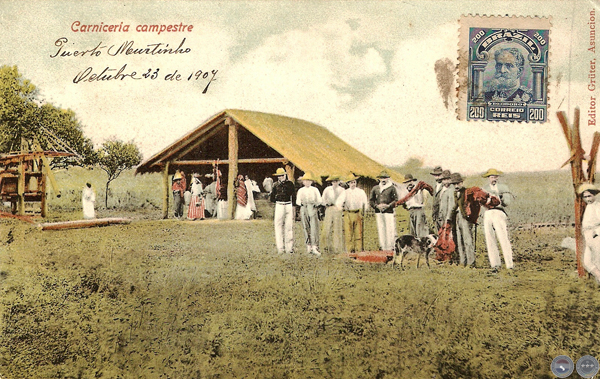 Carniceria campestre
Puerto Murtinho
Octubre 23 de 1907
200 200
BRAZIL
DEODORO
CORREIO
200 REIS 200
Editor Grüter, Asuncion.